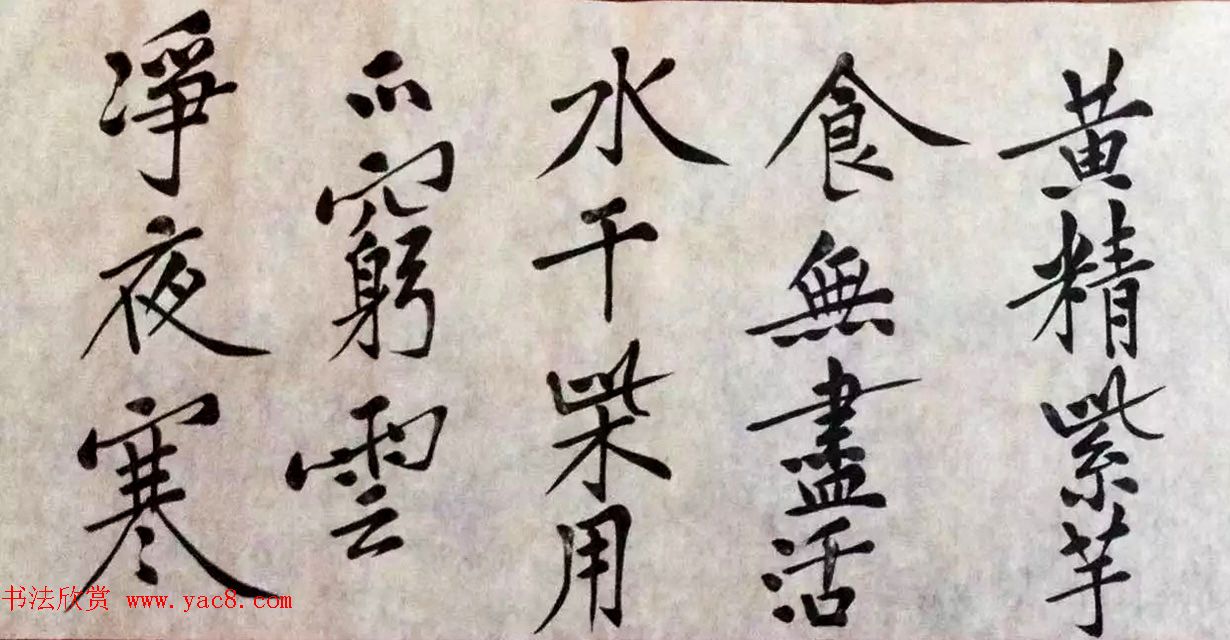 黄精紫芋
食無盡活
水干柴用
不窮雲
淨夜寒
书法欣赏 www.yac8.com